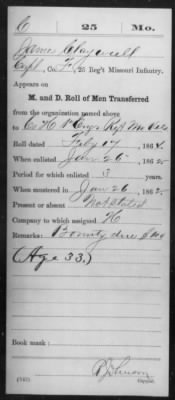 C 25 Mo.
James Claywell
Capt, Co. F, 25 Reg't Missouri Infantry.
Appears on
M. and D. Roll of Men Transferred
from the organization named above
to Co H 1st Engr Regt Mo Vols
Roll dated Feby 17, 1864.
When enlisted Jan 26, 1862
Period for which enlisted 3 years.
When mustered in Jan 26, 1862
Present or absent Not Stated
Company to which assigned H
Remarks: Bounty due $
(Age 33.)
Book mark:
Copyist.